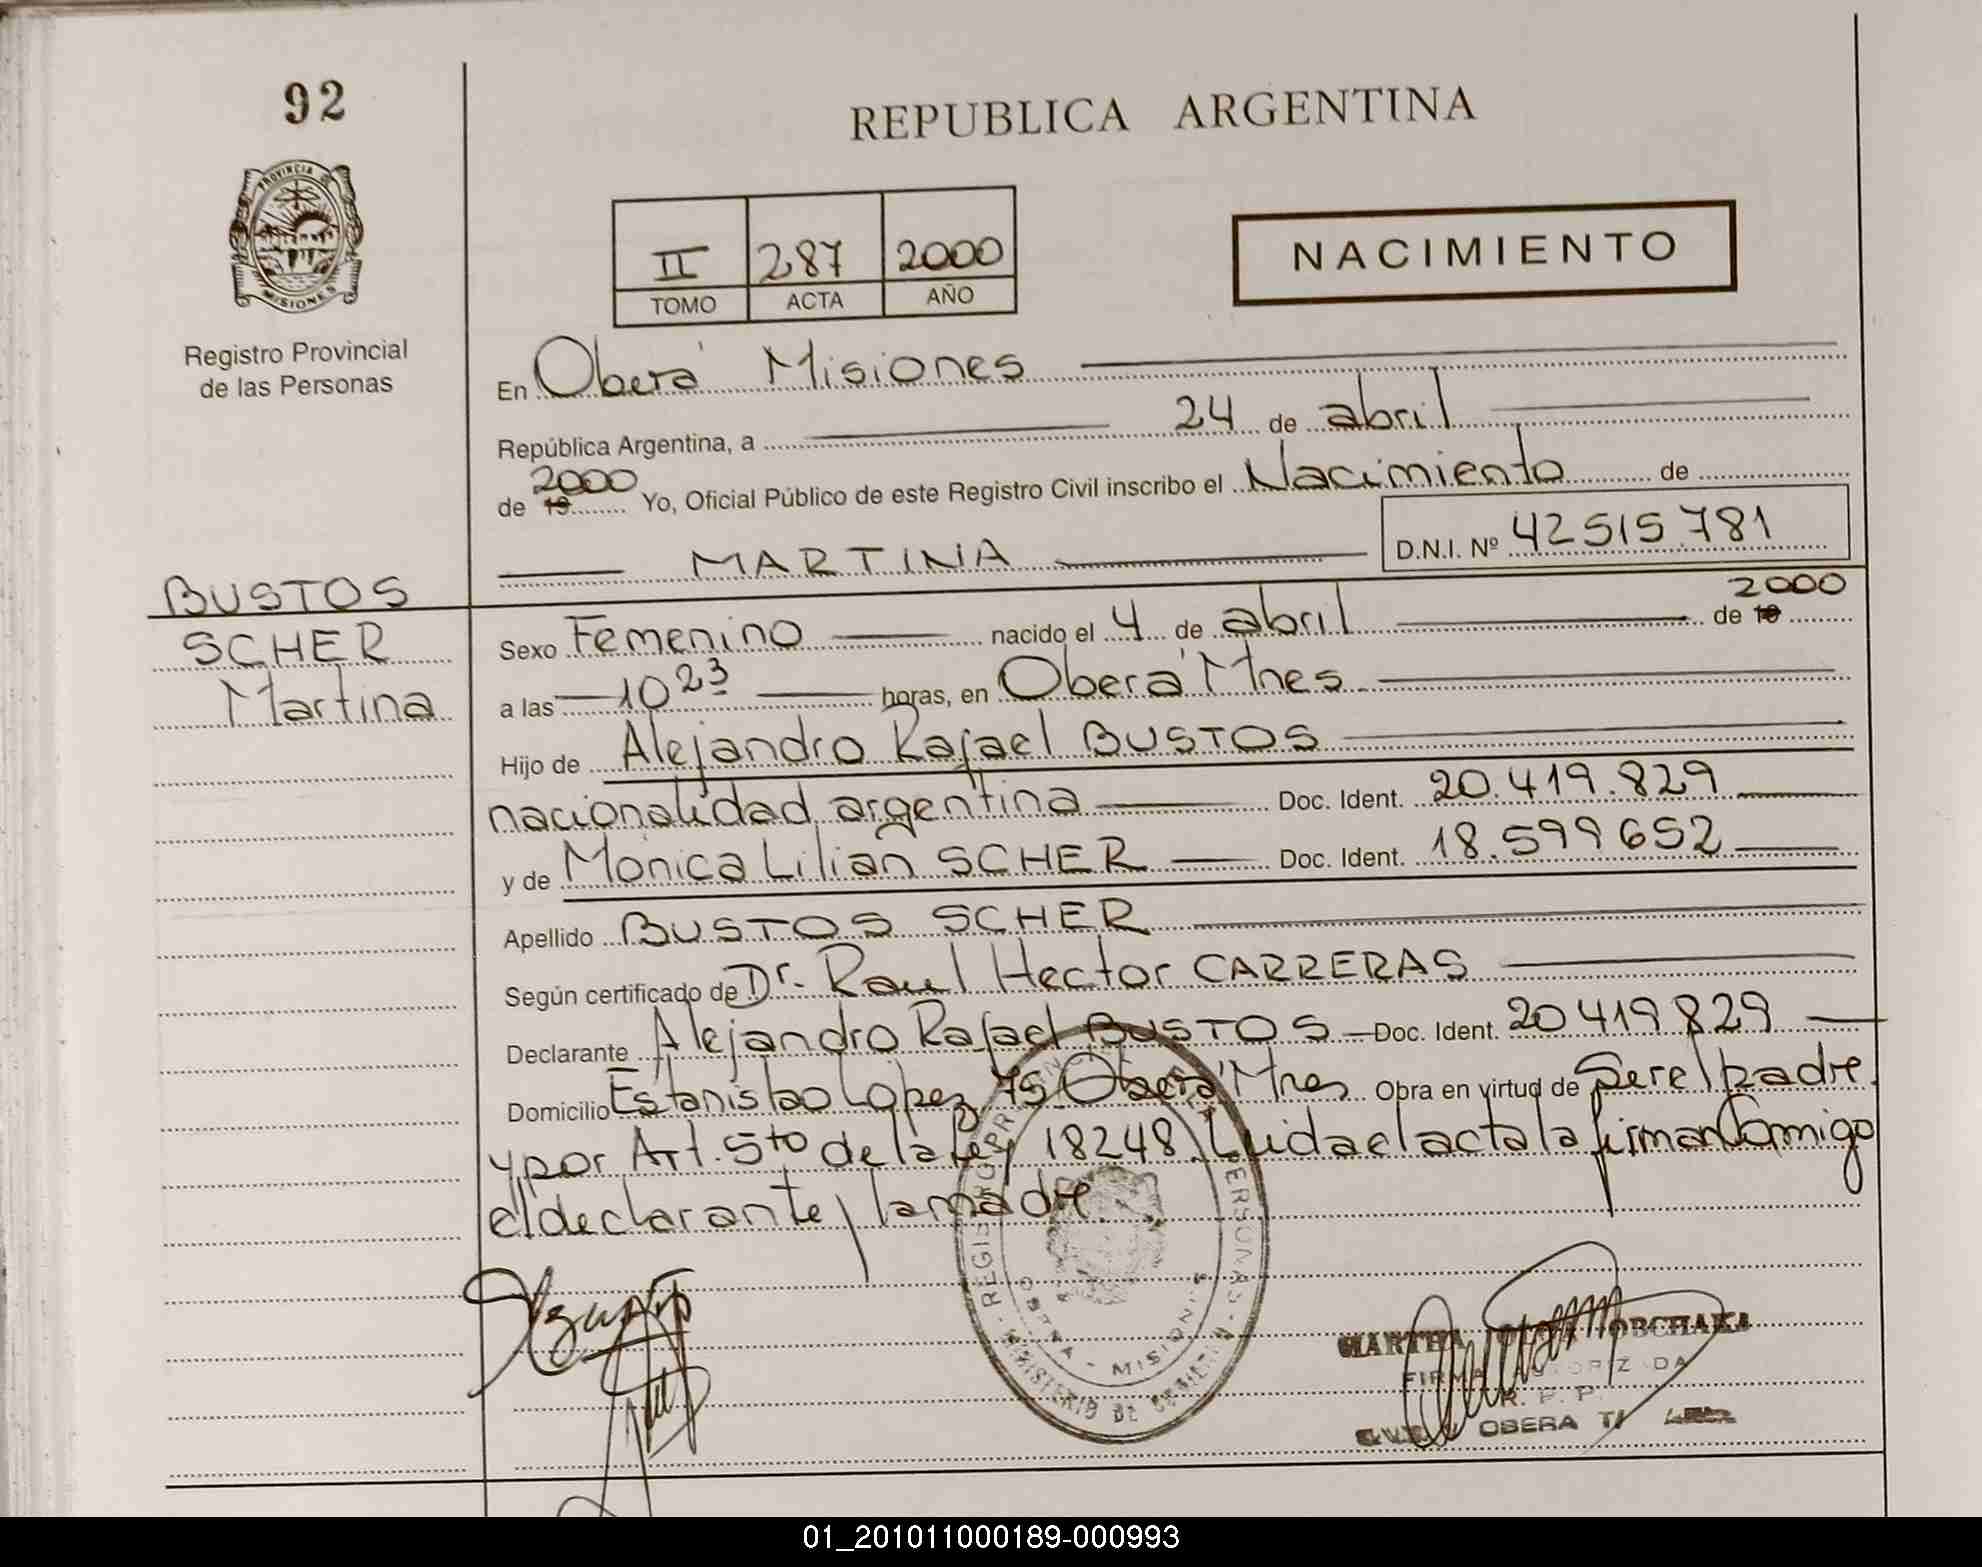 92
REPUBLICA ARGENTINA
PROVINCIA DE
MISIONES
Registro Provincial
de las Personas
II 287 2000
TOMO ACTA AÑO
NACIMIENTO
En Oberá Misiones
República Argentina, a 24 de abril
de 2000 19 Yo, Oficial Público de este Registro Civil inscribo el Nacimiento de
MARTINA D.N.I. Nº 42515.781
BUSTOS
SCHER
Martina
Sexo Femenino nacido el 4 de abril de 19 2000
a las 10 23 horas, en Oberá Mnes
Hijo de Alejandro Rafael BUSTOS
nacionalidad argentina Doc. Ident. 20.419.829
y de Mónica Lilian SCHER Doc. Ident. 18.599652
Apellido BUSTOS SCHER
Según certificado de Dr. Raul Hector CARRERAS
Declarante Alejandro Rafael BUSTOS Doc. Ident. 20419829
Domicilio Estanislao Lopez 75 Oberá Mnes Obra en virtud de Ser el padre
y por Art. 5to de la Ley 18248. Leida el acta la firman Conmigo
el declarante y la madre
OBERA - MISIONES
MARTHA
FIRMA AUTORIZADA
R. P. P.
OBERA
01_201011000189-000993